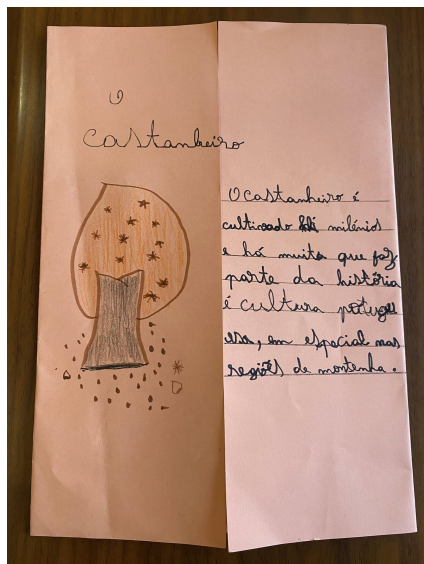 O
castanheiro
O castanheiro é
cultivado há milénios
e há muito que faz
parte da história
é cultura potugu
esa, em espacial nas
regiões de montenha.